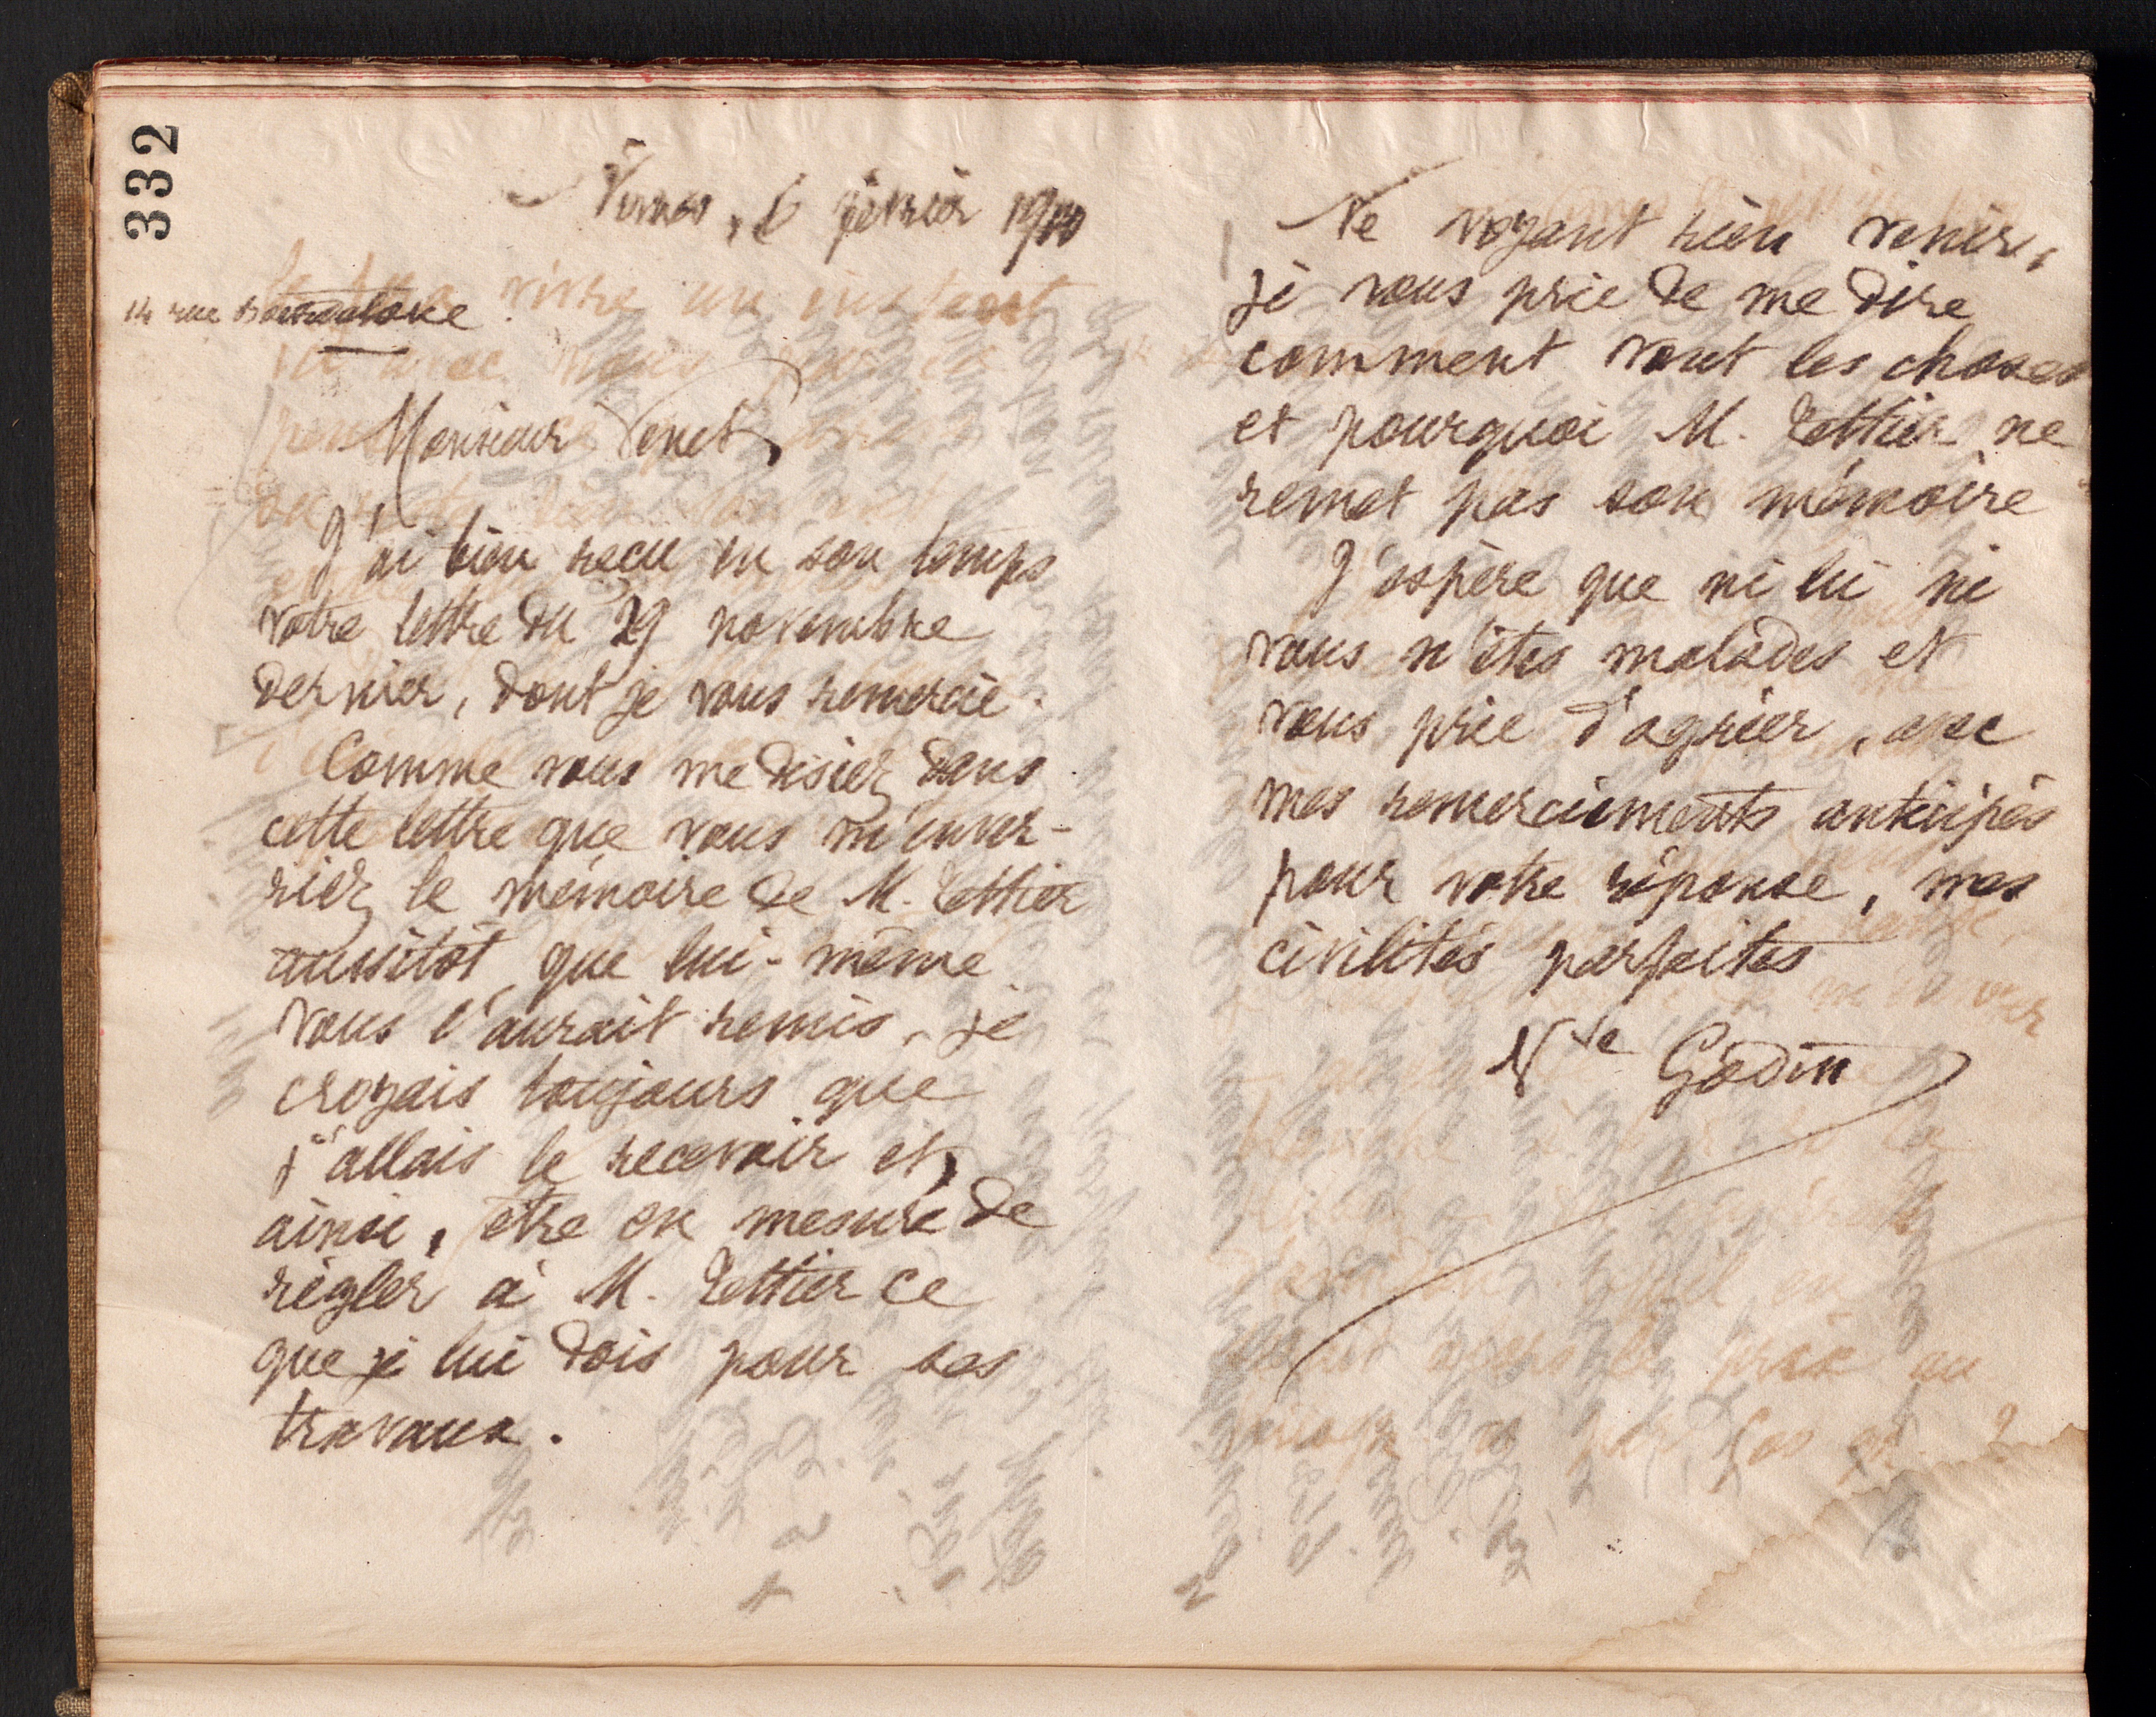 332
Nimes, 6 février 1900
14 rue Bourdaloue
Monsieur Venet,
J'ai bien reçu en son temps
votre lettre du 29 novembre
dernier, dont je vous remercie.
Comme vous me disiez dans
cette lettre que vous m'enver-
riez le mémoire de M. Tettier
aussitôt que lui-même
vous l'aurait remis, je
croyais toujours que
j'allais le recevoir et,
ainsi, être en mesure de
régler à M. Tettier ce
que je lui dois pour ses
travaux.
Ne voyant rien venir,
je vous prie de me dire
comment vont les choses
et pourquoi M. Tettier ne
remet pas son mémoire
J'espère que ni lui ni
vous n'êtes malades et
vous prie d'agréer, avec
mes remerciements anticipés
pour votre réponse, mes
civilités parfaites
Vve Godin